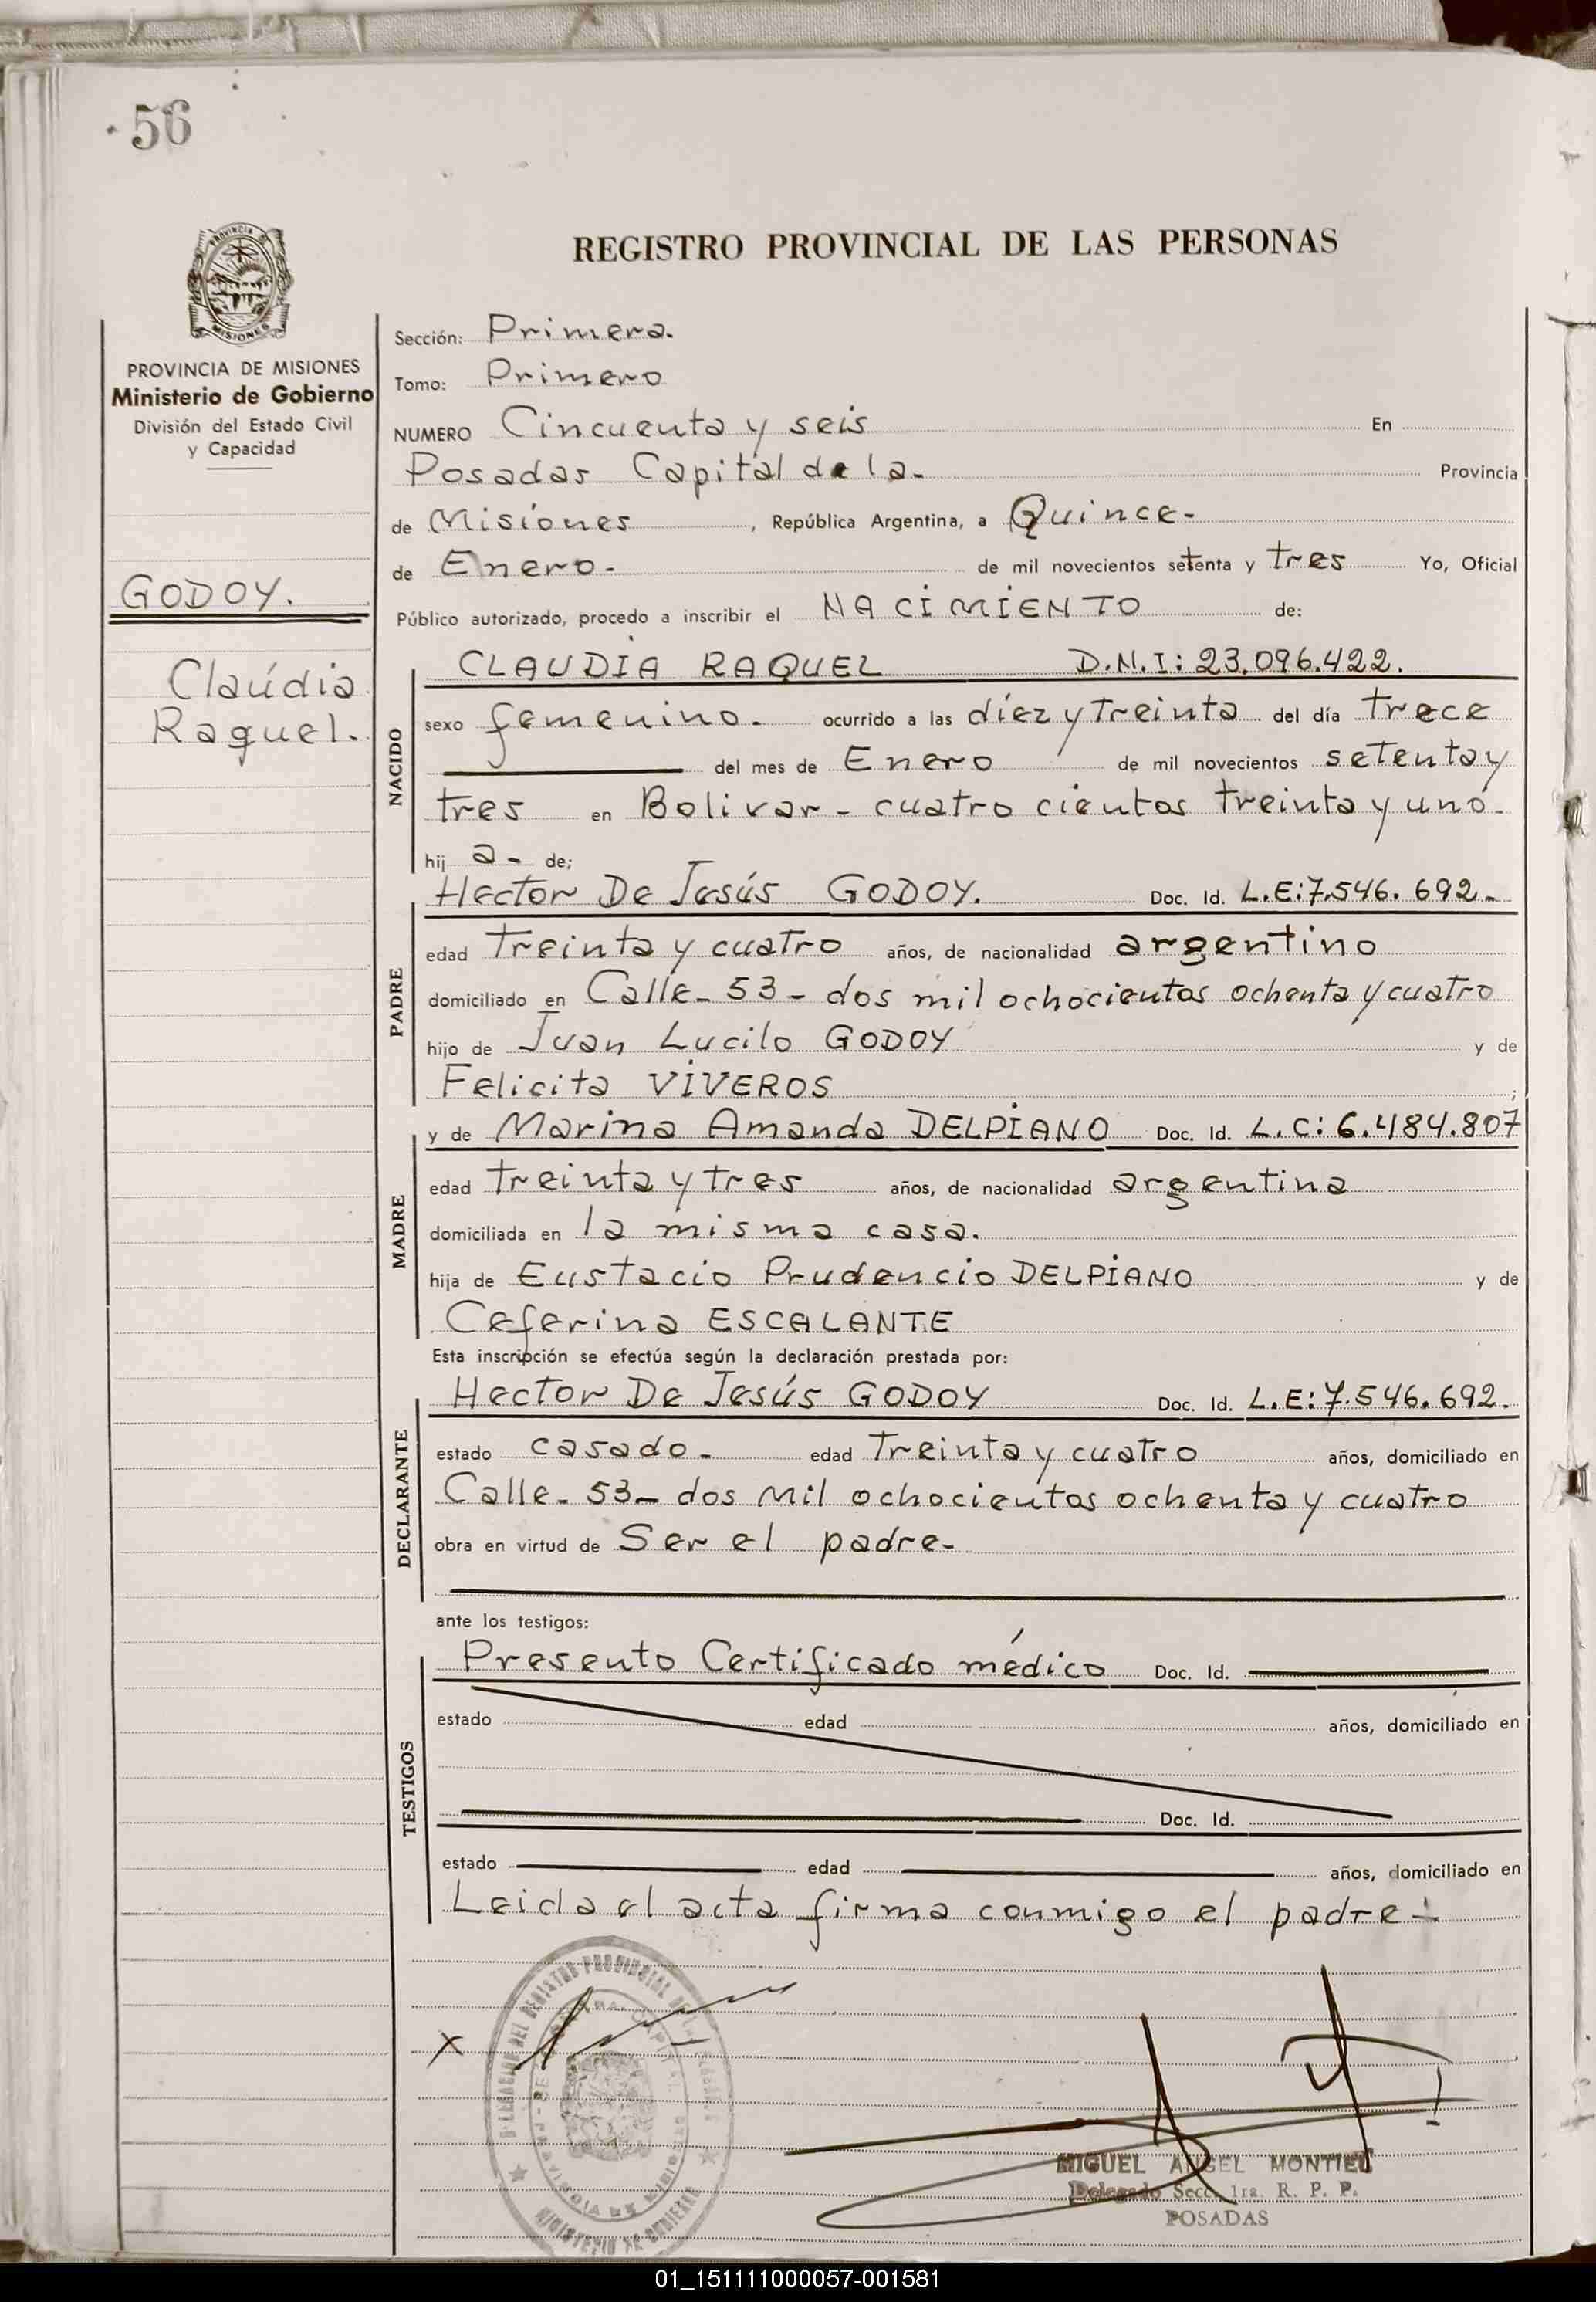 56
REGISTRO PROVINCIAL DE LAS PERSONAS
MISIONES
PROVINCIA DE MISIONES
Ministerio de Gobierno
División del Estado Civil
y Capacidad
GODOY.
Claúdia
Raquel.
Sección: Primera.
Tomo: Primero
NUMERO Cincuenta y seis En
Posadas Capital de la. Provincia
de Misiones, República Argentina, a Quince-
de Enero. de mil novecientos setenta y tres Yo, Oficial
Público autorizado, procedo a inscribir el NACIMIENTO de:
NACIDO
CLAUDIA RAQUEL D.N.I: 23.096.422.
sexo femenino. ocurrido a las díez y treinta del día trece
del mes de Enero de mil novecientos setenta y
tres en Bolivar - cuatro cientos treinta y uno.
hij a- de;
PADRE
Hector De Jesús GODOY. Doc. Id. L.E:7.546.692-
edad treinta y cuatro años, de nacionalidad argentino
domiciliado en Calle- 53- dos mil ochocientos ochenta y cuatro
hijo de Juan Lucilo GODOY y de
Felicita VIVEROS ;
MADRE
y de Marina Amanda DELPIANO Doc. Id. L.C: 6.484.807
edad treinta y tres años, de nacionalidad argentina
domiciliada en la misma casa.
hija de Eustacio Prudencio DELPIANO y de
Ceferina ESCALANTE
Esta inscripción se efectúa según la declaración prestada por:
DECLARANTE
Hector De Jesús GODOY Doc. Id. L.E:7.546.692.
estado casado- edad treinta y cuatro años, domiciliado en
Calle- 53- dos mil ochocientos ochenta y cuatro
obra en virtud de Ser el padre-
ante los testigos:
TESTIGOS
Presento Certificado médico Doc. Id.
estado edad años, domiciliado en
Doc. Id.
estado edad años, domiciliado en
Leida el acta firma conmigo el padre-
X
MIGUEL ANGEL MONTIEL
Delegado Secc. 1ra. R. P. P.
POSADAS
01_151111000057-001581